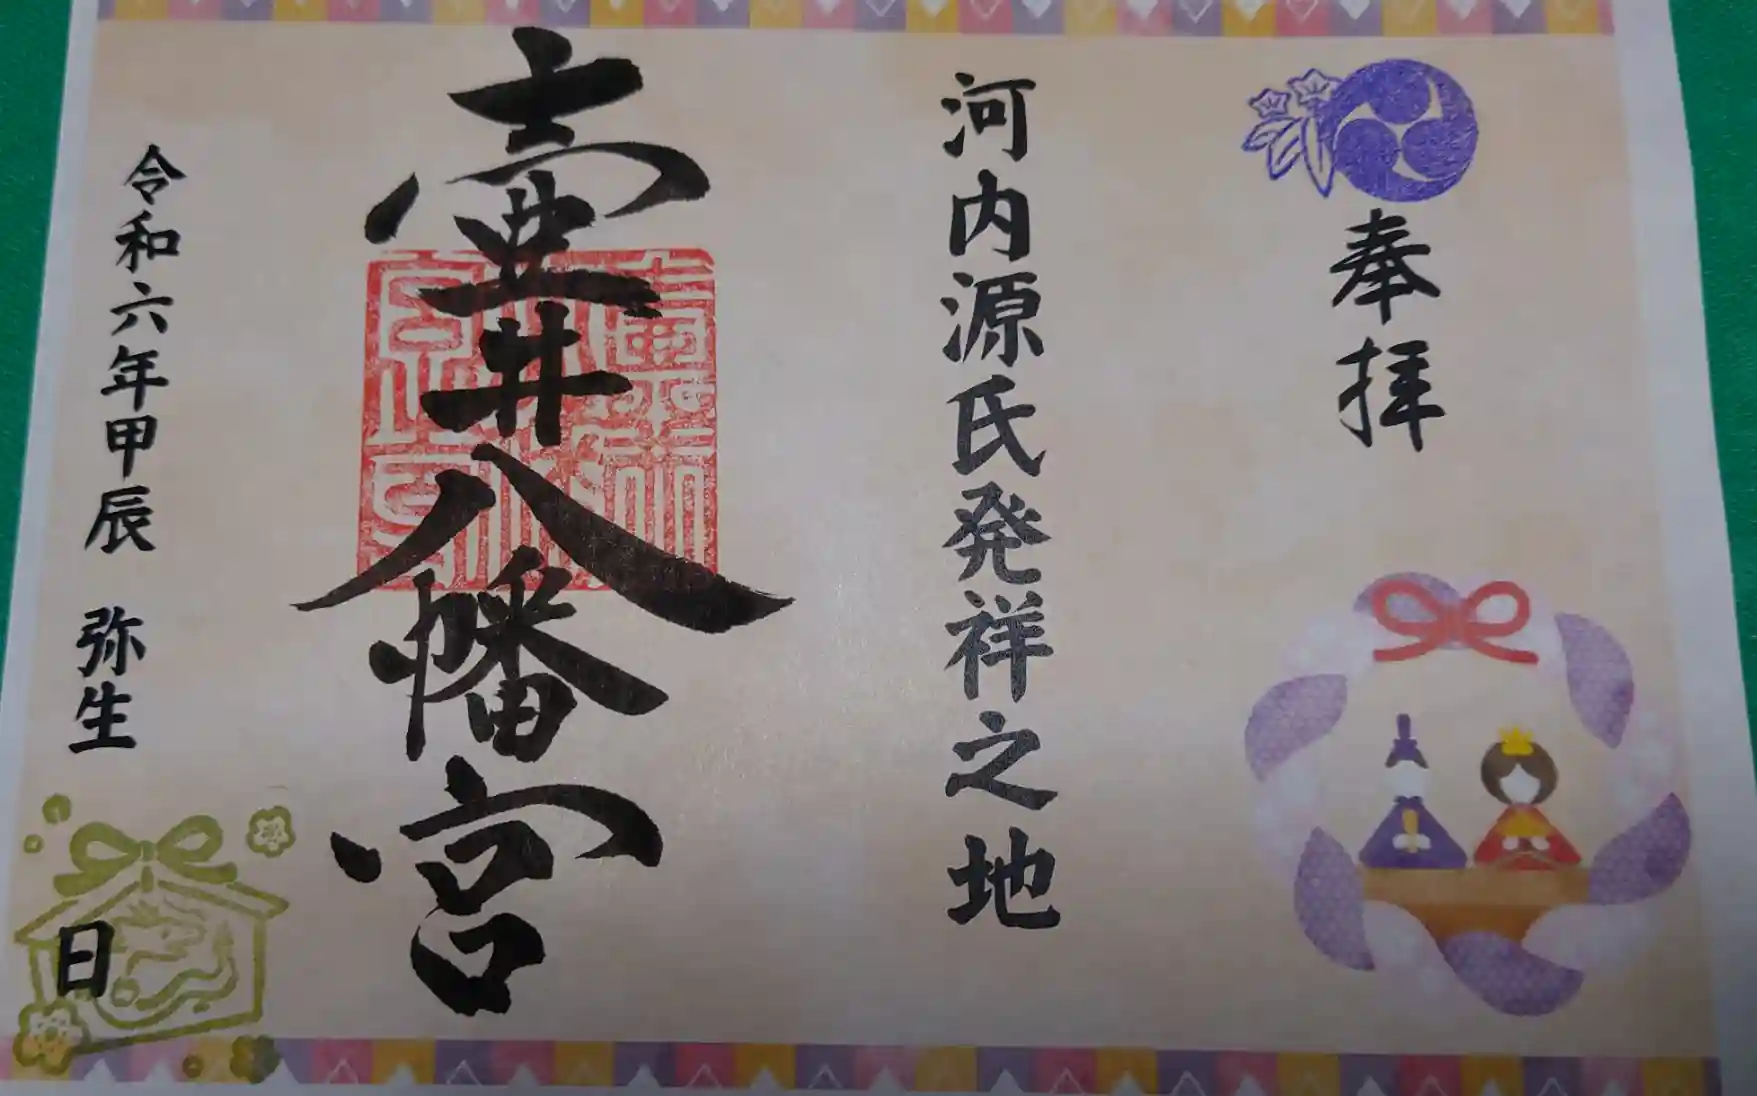 奉拝
河内源氏発祥之地
壷井八幡宮
令和六年甲辰 弥生 日